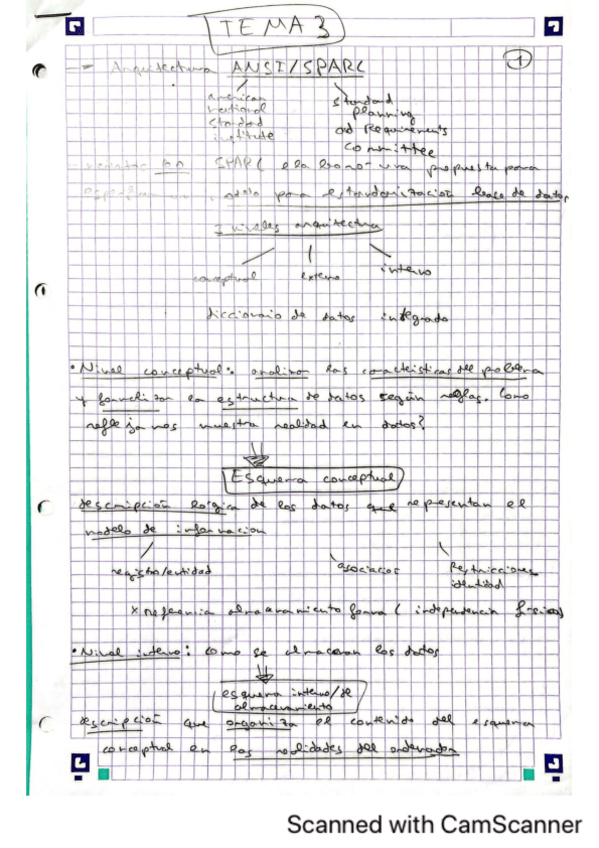 TEMA 3
1
Arquitectura ANSI/SPARC
american
national
standard
institute
standard
planning
and Requirements
Committee
SPARC elaboró una propuesta para
para estandarización base de datos
3 niveles arquitectura
conceptual externo interno
diccionario de datos integrado
• Nivel conceptual: analizar las características del problema
y formalizar la estructura de datos según reglas. Como
reflejamos nuestra realidad en datos?
Esquema conceptual
descripción lógica de los datos que representan el
modelo de informacion
registro/entidad asociacion Restricciones
identidad
x referencia almacenamiento forma (independencia física)
• Nivel interno: como se almacenan los datos
esquema interno/de
almacenamiento
descripción que organiza el contenido del esquema
conceptual en las realidades del ordenador
Scanned with CamScanner